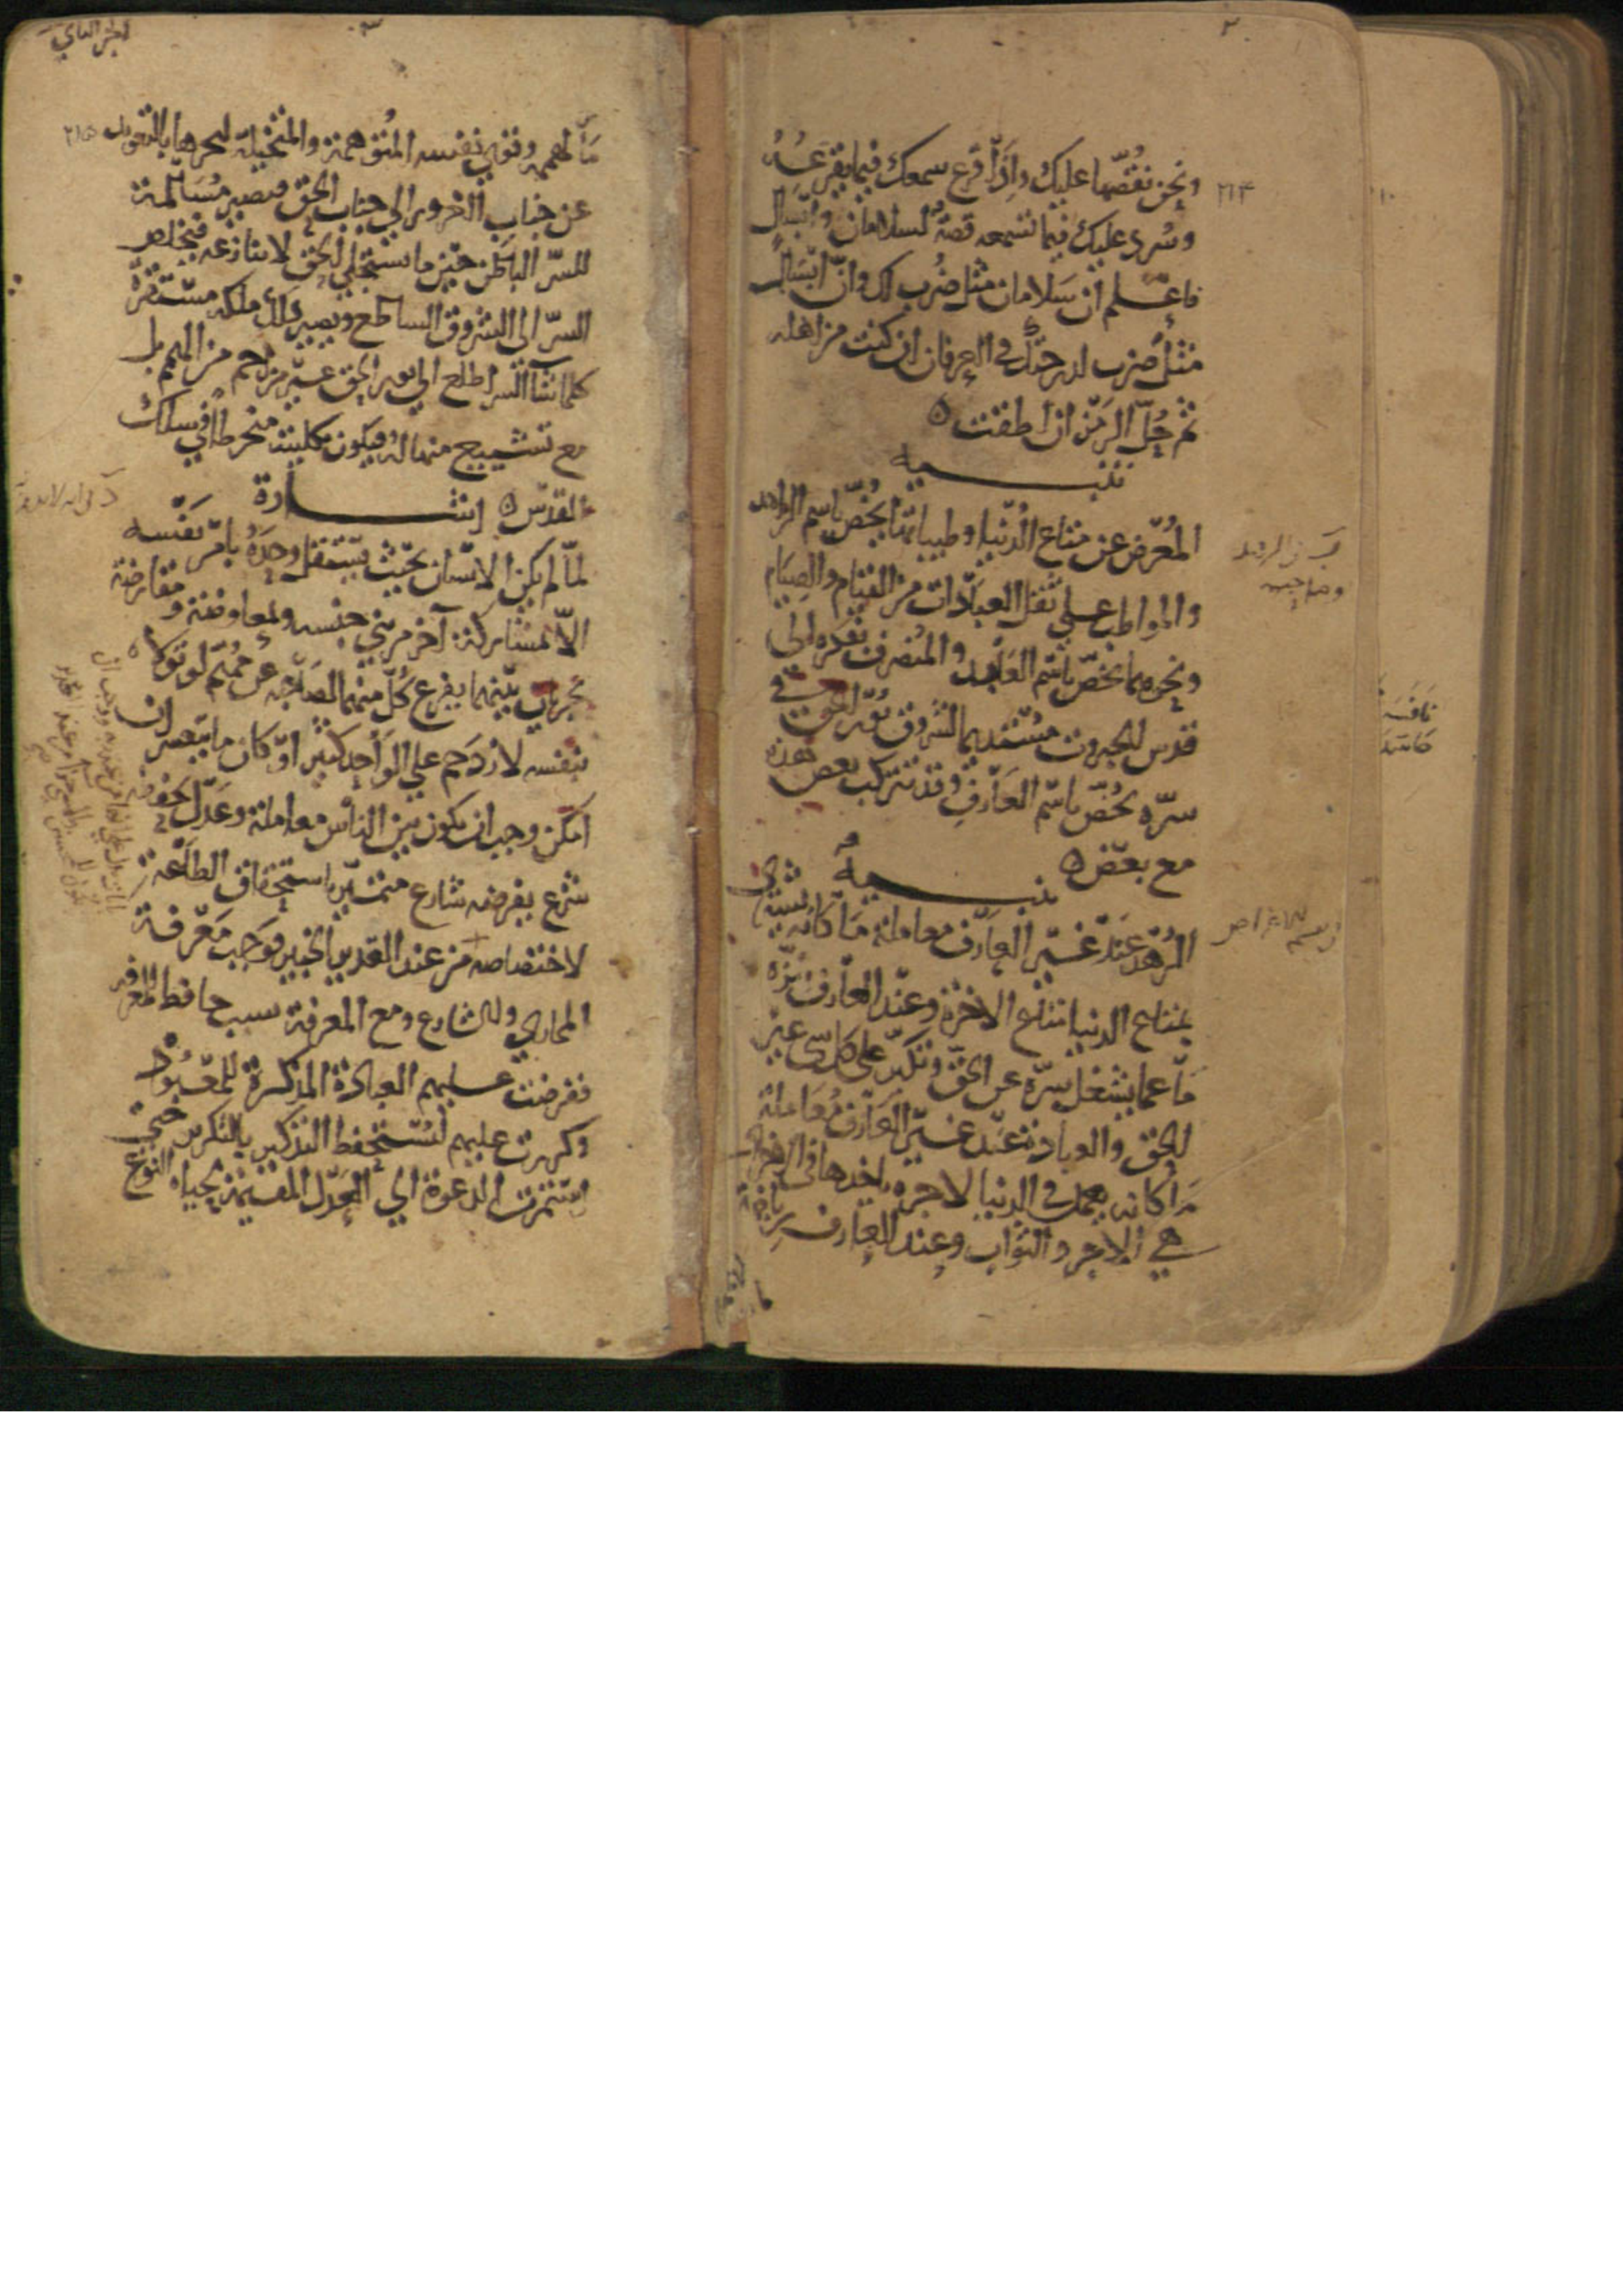 ٢
ونحن نقصها عليك واذا قرع سمعك فيما يقرعه
وسرى عليك فيما تسمعه قصة لسلامان وابسال
فاعلم ان سلامان مثل ضرب لك وان ابسال
مثل ضرب لدرجتك في العرفان ان كنت من اهله
ثم حل الرمز ان اطقت ه
تنبيه
المعرض عن متاع الدنيا وطيباتها يخص باسم الزاهد
والمواظب على نفل العبادات من القيام والصيام
ونحوهما يخص باسم العابد والمنصرف بفكره الى
قدس الجبروت مستديما لشروق نور الحق في
سره يخص باسم العارف وقد تتركب بعض هذه
مع بعض ه
تنبيه
الزهد عند غير العارف معاملة ما كانه يشتري
بمتاع الدنيا متاع الاخرة وعند العارف تنزه
ما عما يشغل سره عن الحق وتكبر على كل شي غير
الحق والعبادة عند غير العارف معاملة
ما كانه يعمل في الدنيا لاجرة ياخذها في الاخرة
هي الاجر والثواب وعند العارف رياضة
٢١٤
٣
ما لهممه وقوى نفسه المتوهمة والمتخيلة ليجرها بالتعويد
عن جناب الغرور الى جناب الحق فتصير مسالمة
للسر الباطن حين ما يستجلي الحق لا تنازعه فيخلص
السر الى الشروق الساطع ويصير ذلك ملكة مستقرة
كلما شا السر اطلع الى نور الحق غير مزاحم من الهمم بل
مع تشييع منها له فيكون بكليته منخرطا في سلك
القدس ه اشارة
لما لم يكن الانسان بحيث يستقل وحده بامر نفسه
الا بمشاركة آخر من بني جنسه وبمعاوضة ومعارضة
تجريان بينهما يفرغ كل منهما لصاحبه عن مهم لو تولاه
بنفسه لازدحم على الواحد كثير او كان ما يتعسر ان
امكن وجب ان يكون بين الناس معاملة وعدل يحفظه
شرع يفرضه شارع متميز باستحقاق الطاعة
لاختصاصه من عند القدير الخبير فوجب معرفة
المجازي والشارع ومع المعرفة سبب حافظ للمعرفة
ففرضت عليهم العبادة المذكرة للمعبود
وكررت عليهم ليستحفظ التذكير بالتكرير حتى
استمرت الدعوة الى العدل المقيم لحياة النوع
٢١٥